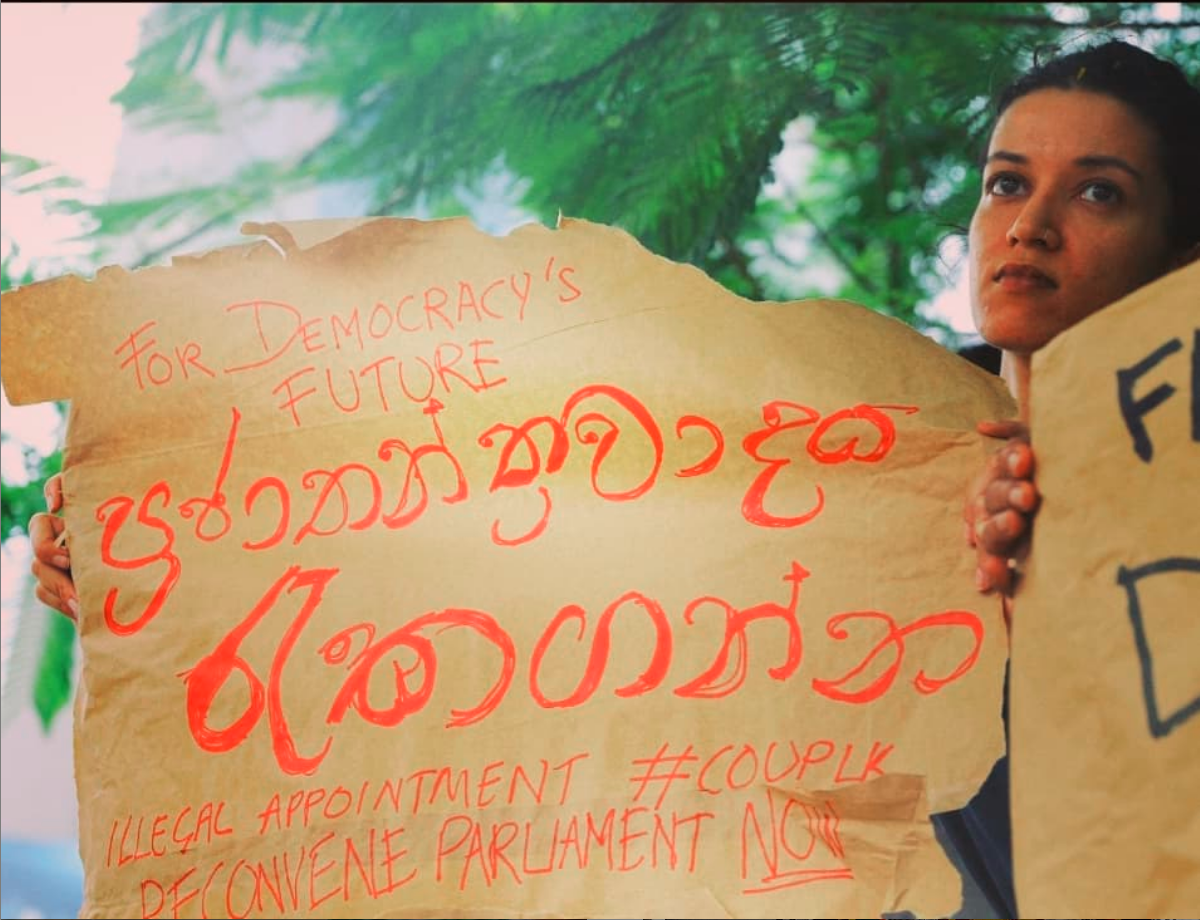 FOR DEMOCRACY'S
FUTURE
ප්‍රජාතන්ත්‍රවාදය
රැකගන්න
ILLEGAL APPOINTMENT #COUPLK
RECONVENE PARLIAMENT NOW